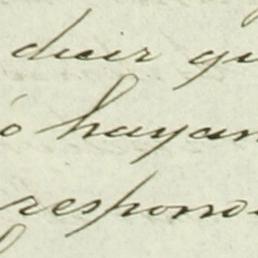 decir qu
ó hayan
respond